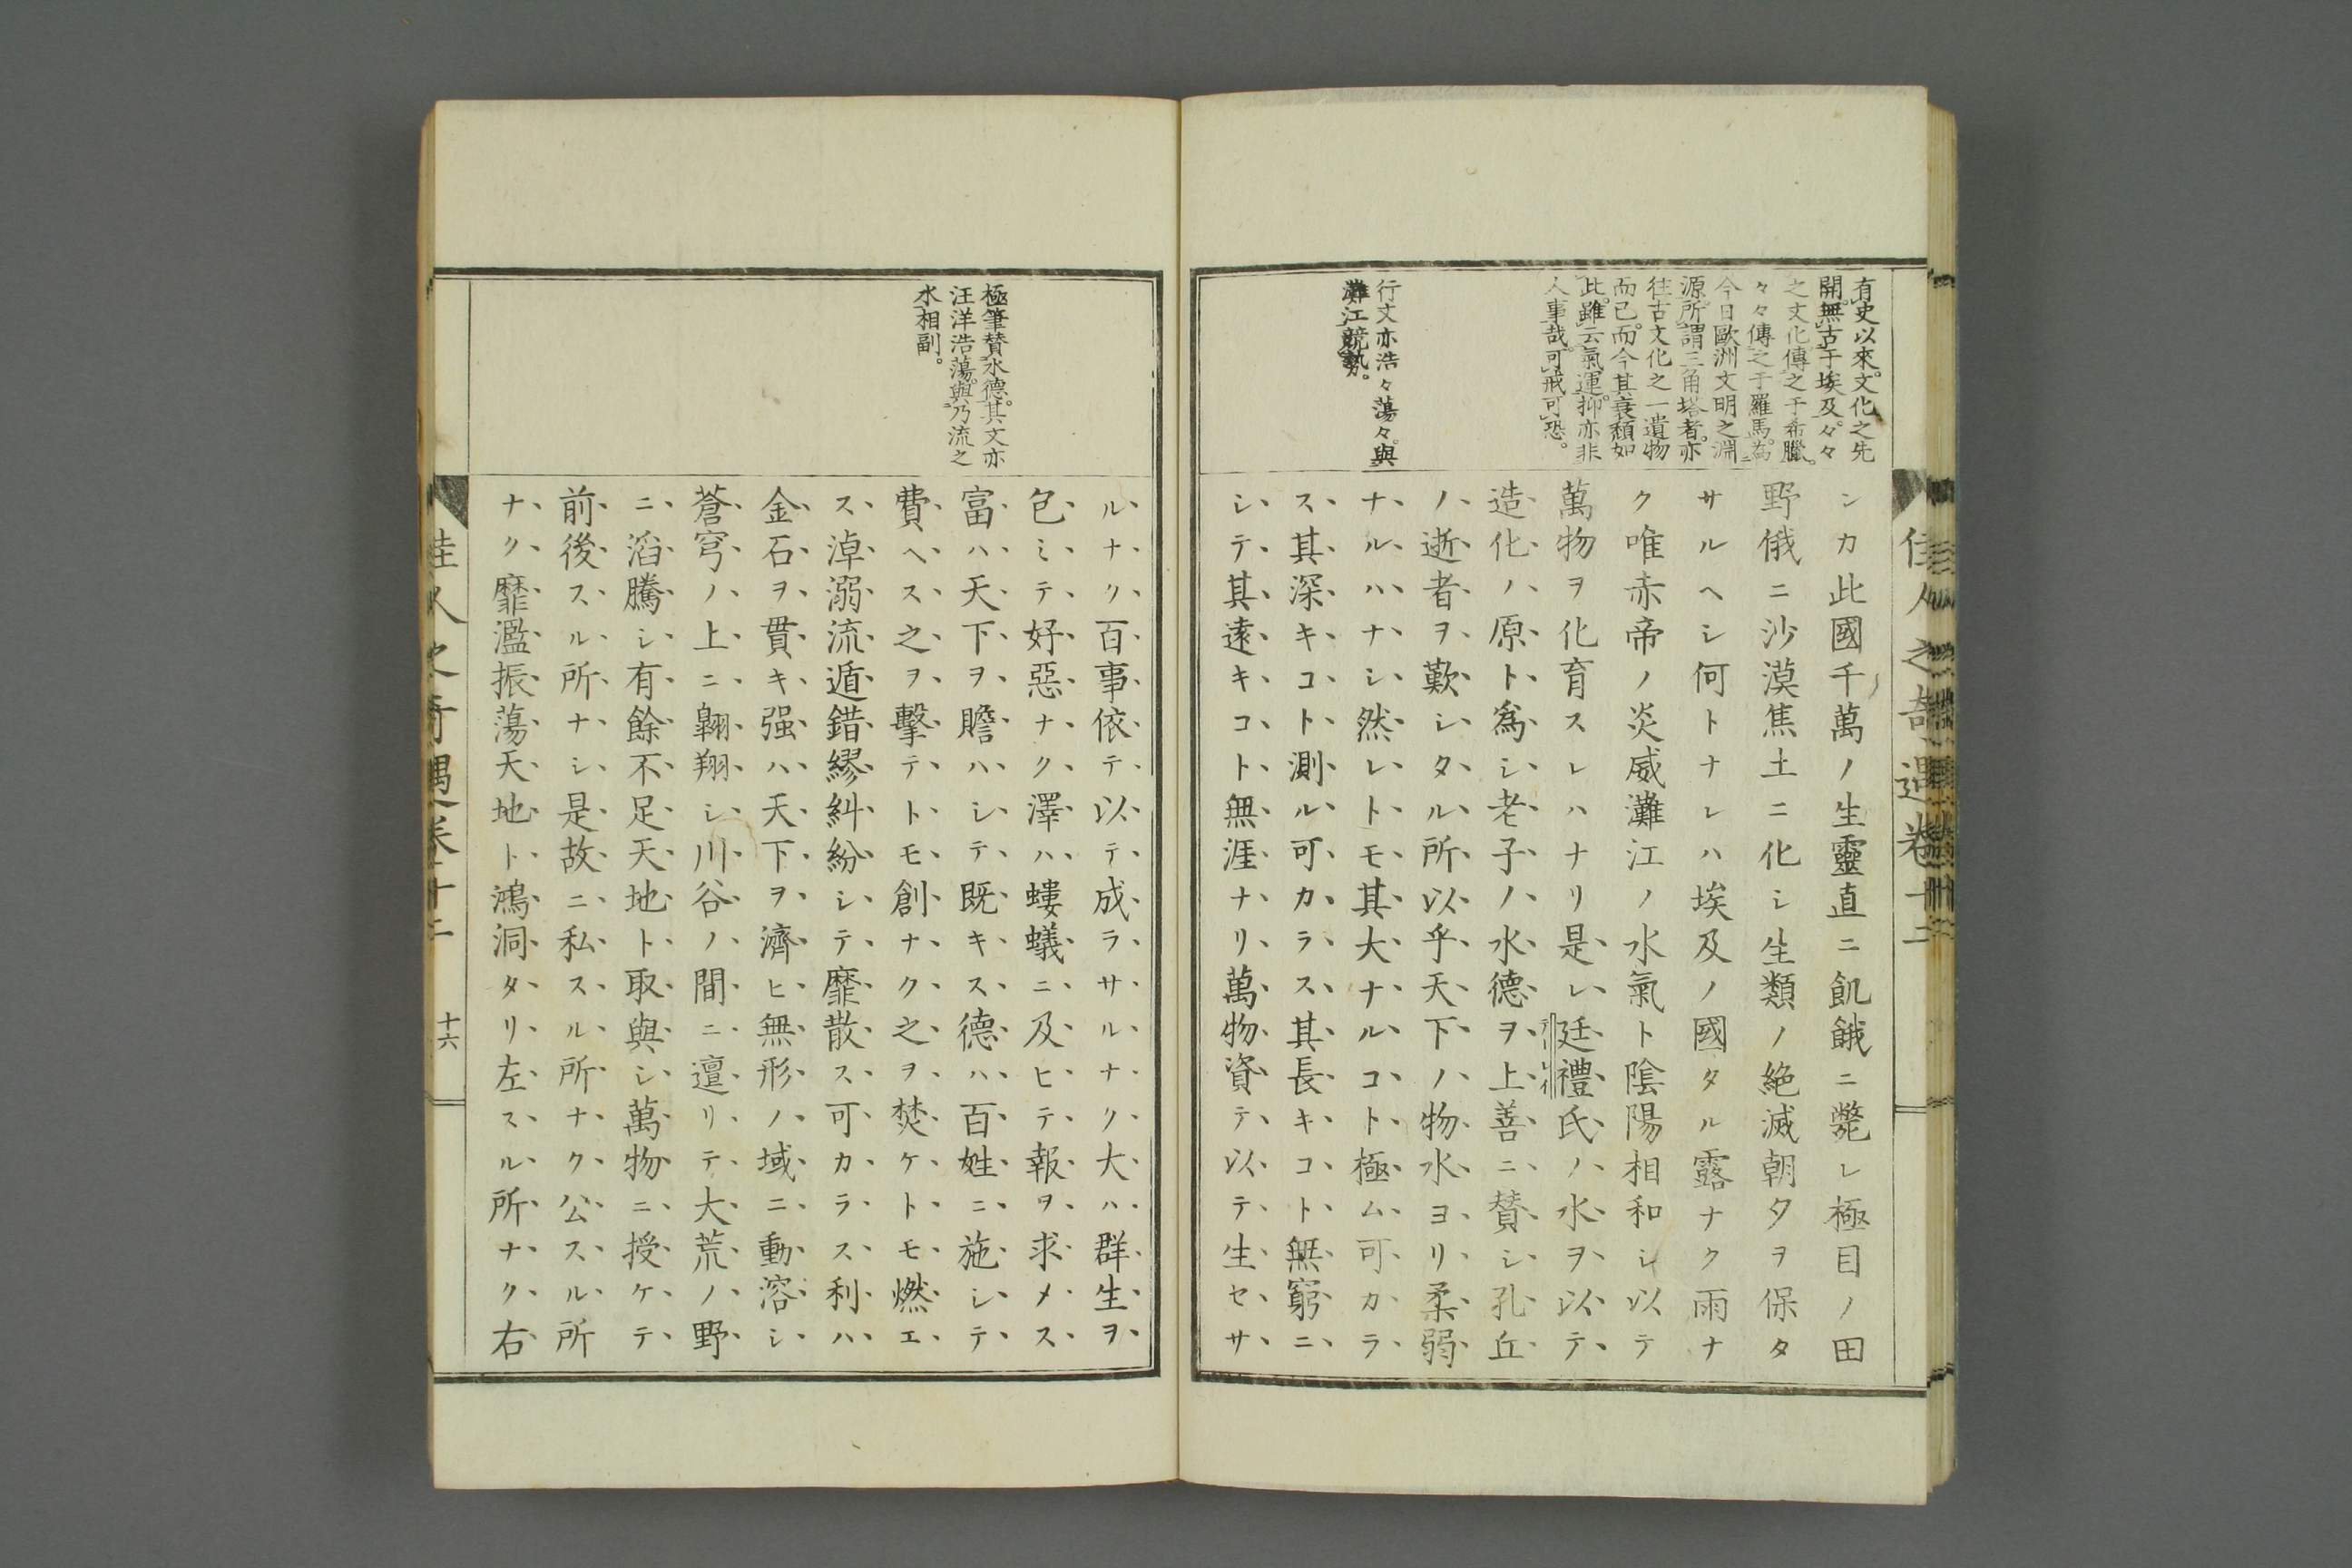 佳人之奇遇卷十二
有史以來。文化之先
開。無古于埃及。々々
之文化傳之于希臘。
々々傳之于羅馬。爲
今日歐洲文明之淵
源。所謂三角塔者。亦
往古文化之一遺物
而已。而今其衰頽如
此。雖云氣運。抑亦非
人事哉。可戒可恐。
行文亦浩々蕩々。與
灘江競勢。
ンカ此國千萬ノ生靈直ニ飢餓ニ斃レ極目ノ田
野俄ニ沙漠焦土ニ化シ生類ノ絶滅朝夕ヲ保タ
サルヘシ何トナレハ埃及ノ國タル露ナク雨ナ
ク唯赤帝ノ炎威灘江ノ水氣ト陰陽相和シ以テ
萬物ヲ化育スレハナリ是レ廷禮氏ノ水ヲ以テ
造化ノ原ト爲シ老子ノ水德ヲ上善ニ賛シ孔丘
ノ逝者ヲ歎シタル所以乎天下ノ物水ヨリ柔弱
ナルハナシ然レトモ其大ナルコト極ム可カラ
ス其深キコト測ル可カラス其長キコト無窮ニ
シテ其遠キコト無涯ナリ萬物資テ以テ生セサ
極筆賛水德。其文亦
汪洋浩蕩。與乃流之
水相副。
ルナク百事依テ以テ成ラサルナク大ハ群生ヲ
包ミテ好惡ナク澤ハ螻蟻ニ及ヒテ報ヲ求メス
富ハ天下ヲ贍ハシテ既キス德ハ百姓ニ施シテ
費ヘス之ヲ擊テトモ創ナク之ヲ焚ケトモ燃エ
ス淖溺流遁錯繆糾紛シテ靡散ス可カラス利ハ
金石ヲ貫キ强ハ天下ヲ濟ヒ無形ノ域ニ動溶シ
蒼穹ノ上ニ翺翔シ川谷ノ間ニ邅リテ大荒ノ野
ニ滔騰シ有餘不足天地ト取與シ萬物ニ授ケテ
前後スル所ナシ是故ニ私スル所ナク公スル所
ナク靡濫振蕩天地ト鴻洞タリ左スル所ナク右
佳人之奇遇卷十二
十六